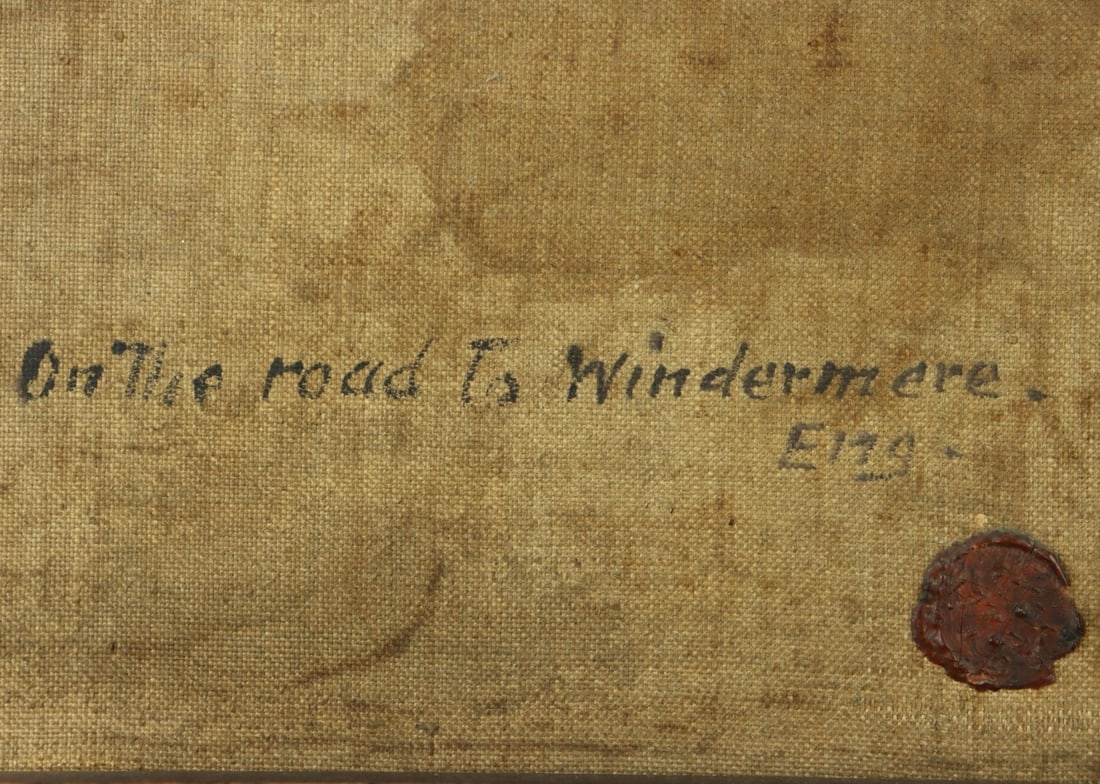 On The road To Windermere.
Eng.